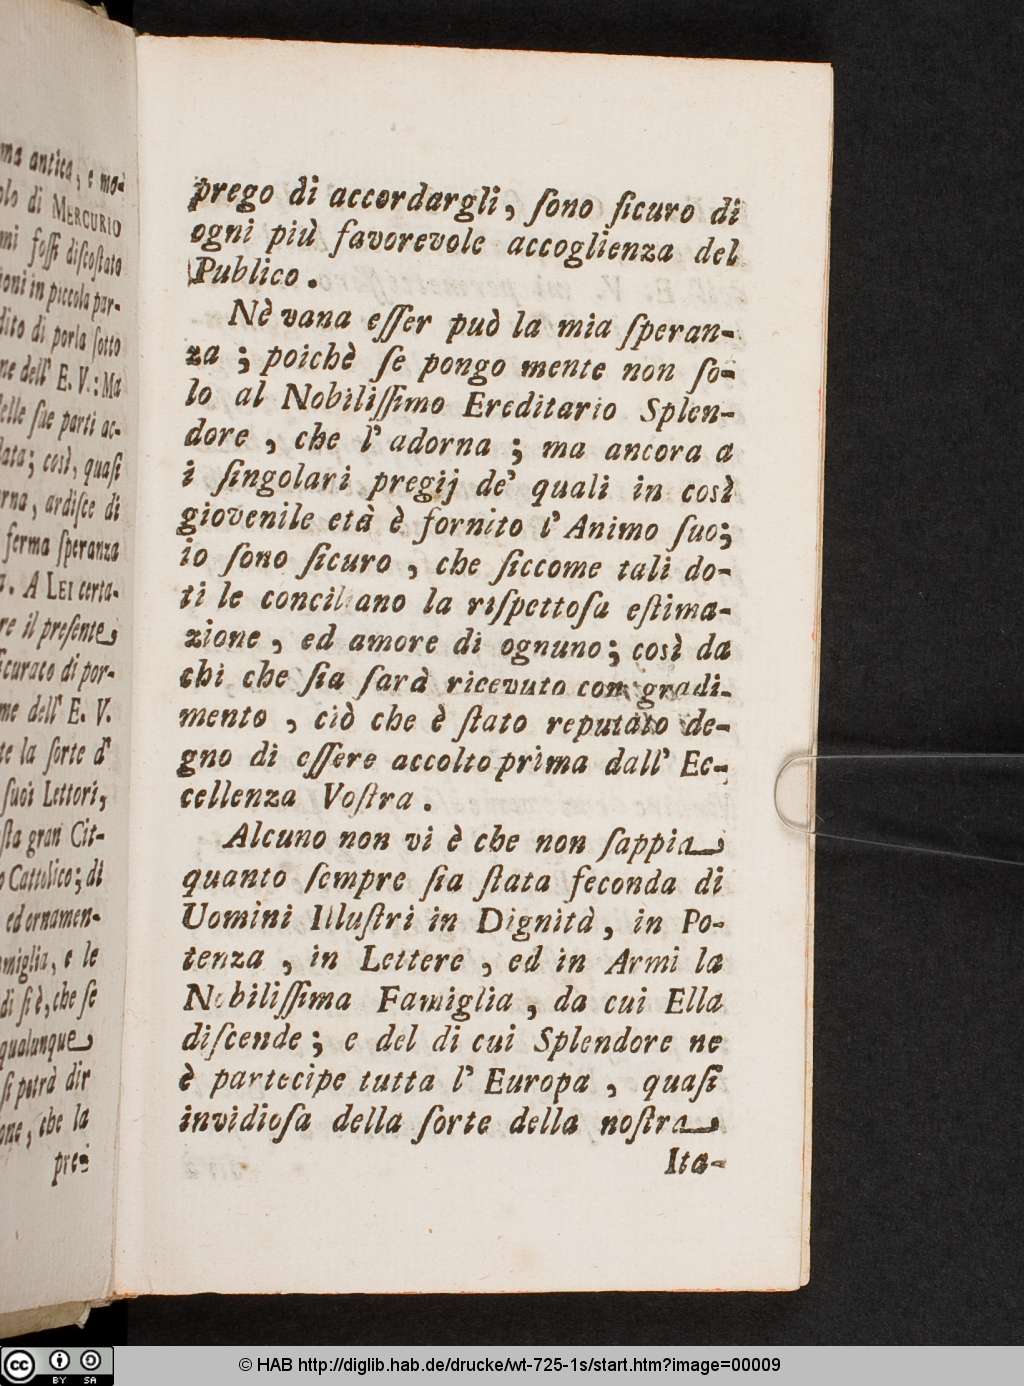 ma antica, e mo-
olo di MERCURIO
mi foſſi diſcoſtato
ioni in piccola par-
dito di porla ſotto
ne dell' E. V.: Ma
delle ſue parti ac-
data; così, quaſi
rna, ardiſce di
ferma ſperanza
a. A LEI certa-
re il preſente
ſicurato di por-
me dell' E. V.
te la ſorte d'
ſuoi Lettori,
ſta gran Cit-
o Cattolico; di
ed ornamen-
amiglia, e le
di ſi è, che ſe
qualunque
ſi potrà dir
one, che la
pre-
prego di accordargli, ſono ſicuro di
ogni più favorevole accoglienza del
Publico.
Nè vana eſſer può la mia ſperan-
za ; poichè ſe pongo mente non ſo-
lo al Nobiliſſimo Ereditario Splen-
dore , che l' adorna ; ma ancora a
i ſingolari pregij de' quali in così
giovenile età è fornito l' Animo ſuo;
io ſono ſicuro , che ſiccome tali do-
ti le conciliano la riſpettoſa eſtima-
zione , ed amore di ognuno; così da
chi che ſia ſarà ricevuto con gradi-
mento , ciò che è ſtato reputato de-
gno di eſſere accolto prima dall' Ec-
cellenza Voſtra .
Alcuno non vi è che non ſappia
quanto ſempre ſia ſtata feconda di
Uomini Illuſtri in Dignità , in Po-
tenza , in Lettere , ed in Armi la
Nobiliſſima Famiglia , da cui Ella
diſcende ; e del di cui Splendore ne
è partecipe tutta l' Europa , quaſi
invidioſa della ſorte della noſtra
Ita-
cc BY SA
© HAB http://diglib.hab.de/drucke/wt-725-1s/start.htm?image=00009